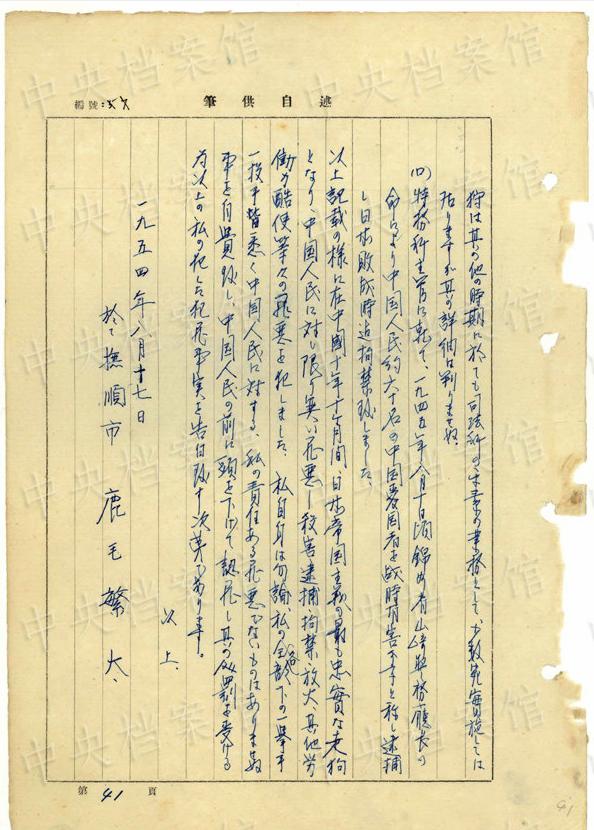 述自供筆
編號:57
狩は其の他の時期に於ても司法科の
居りますが其の詳細は判りませぬ。
特務科主管に就て、一九四五年八月十日頃錦州省山崎警務廳長の
命により中国人民約六十名の中国愛国者を戦時有害分子と称し逮捕
し日本敗戦時迄拘禁致しました。
以上記載の様に在中國十年十ヶ月間、日本帝国主義の最も忠實な走狗
となり、中国人民に対し限り無い罪悪、殺害逮捕、拘禁、放火、其他労
働力酷使等々の罪悪を犯しました。私自身は勿論、私の全部下の一挙手
一投手皆悉く中国人民に対する、私の責任ある罪悪でないものはありませぬ
事を自責致し、中国人民の前に頭を下げて認罪し其の処罰を受ける
為以上の私の犯した犯罪事実を告白致す次第であります。
以上、
一九五四年八月十七日
於て撫順市 鹿毛繁太、
第 41 頁
41
中央档案馆